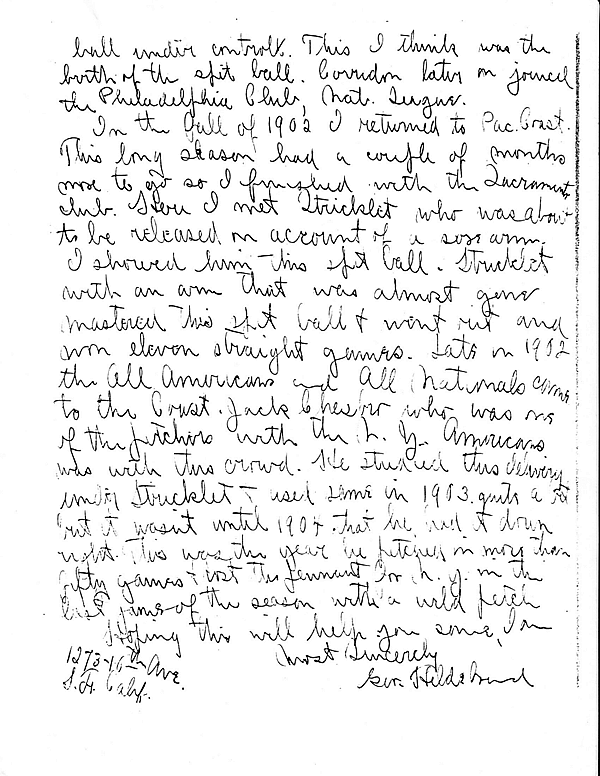 ball under controlk. This I think was the
birth of the spit ball. Corridon later on joined
the Philadelphia Club, Nat. League.
In the Fall of 1902 I returned to Pac. Coast.
This long season had a couple of months
more to go so I finished with the Sacramento
club. Here I met Stricklet who was about
to be released on account of a sore arm.
I showed him this spit ball. Stricklet
with an arm that was almost gone
mastered this spit ball & went out and
won eleven straight games. Late in 1902
the All Americans and All Nationals came
to the Coast. Jack Chesbro who was one
of the pitchers with the N. Y. Americans
was with this crowd. He studied this delivery
under Stricklet & used same in 1903 quite a
but it wasnt until 1904 that he had it down
right. This was the year he pitched in more than
fifty games & lost the pennant for N. Y. in the
last game of the season with a wild pitch
Hoping this will help you some, I am
Most Sincerely
Geo. Hildebrand
1273-10th Ave.
S. F. Calif.